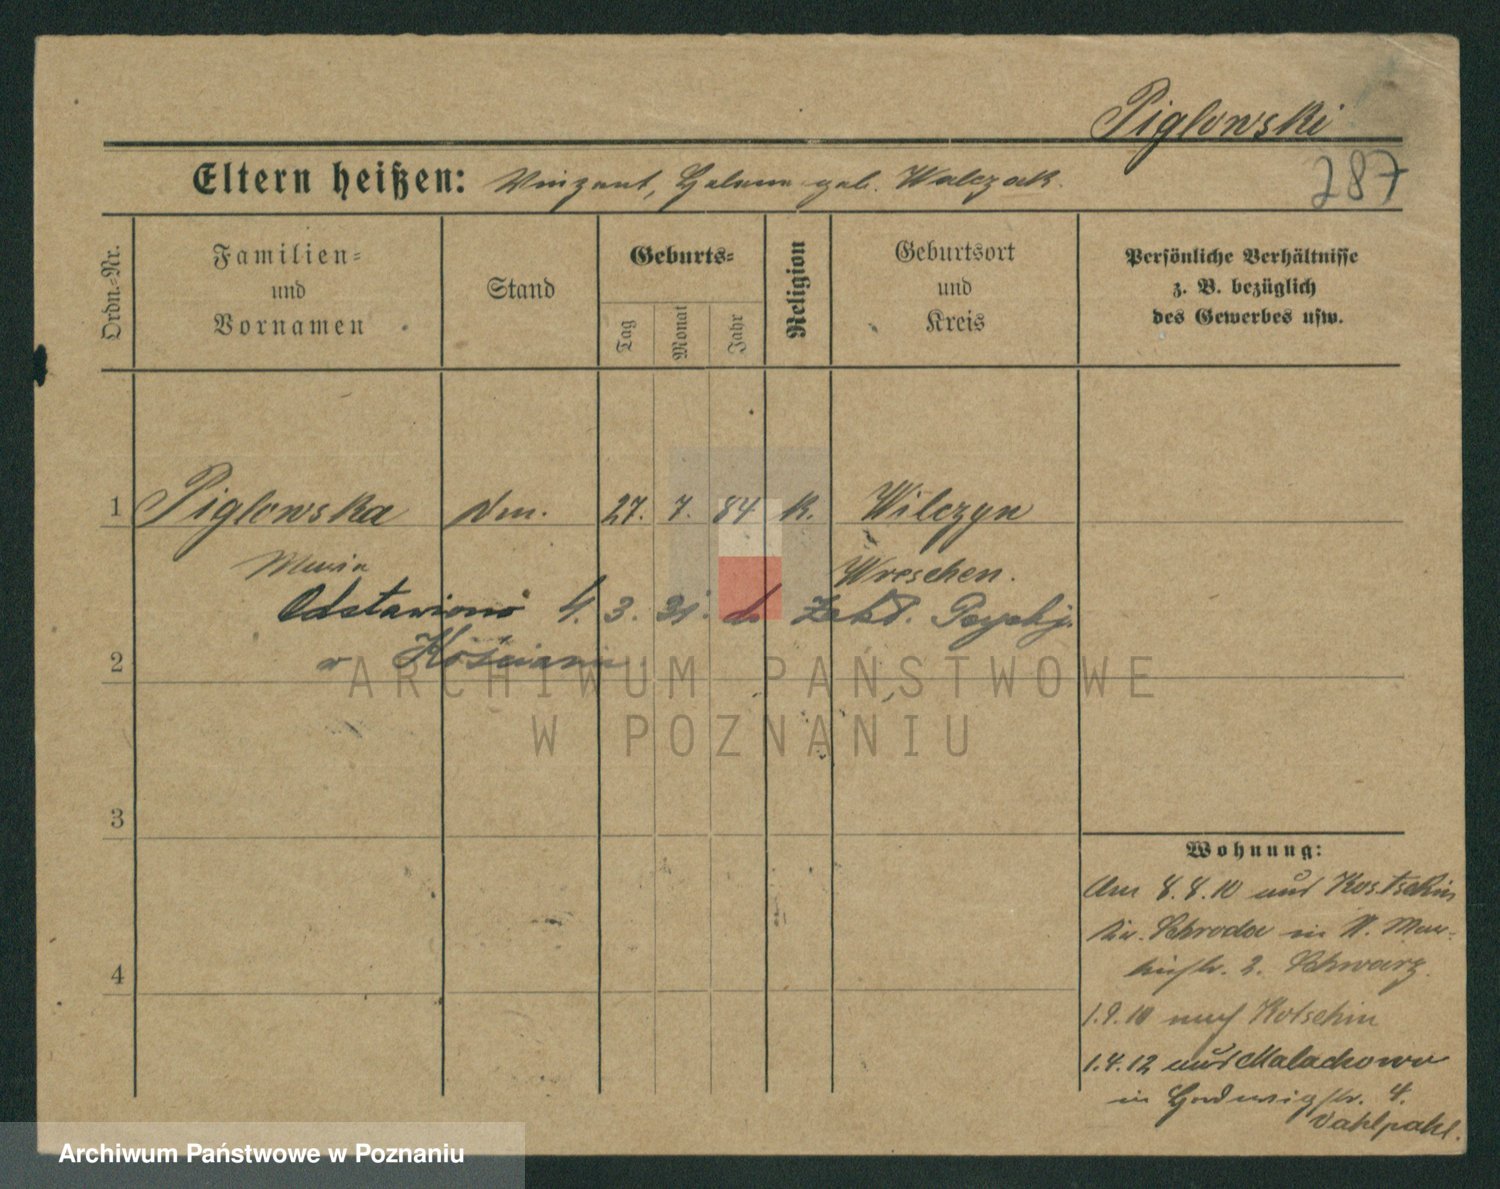 Piglowski
287
Eltern heißen: Vinzent, Helene geb. Walczak.
Ordn.-Nr.
Familien-
und
Vornamen
Stand
Geburts-
Tag
Monat
Jahr
Religion
Geburtsort
und
Kreis
Persönliche Verhältnisse
z. B. bezüglich
des Gewerbes usw.
1 Piglowska 27. 7. 84 K. Wilczyn
Maria Wreschen.
Odstawiono 4. 3. 31. do Zakł. Psychj.
2 w Kościanie
ARCHIWUM PAŃSTWOWE
W POZNANIU
3
4
Wohnung:
Am 8.8.10 aus Kostschin
Kr. Schroda in N. 
2. Schwarz.
1.9.10 nach Kotschin
1.4.12 aus Malachowo
in Hedwigstr. 4.
Archiwum Państwowe w Poznaniu